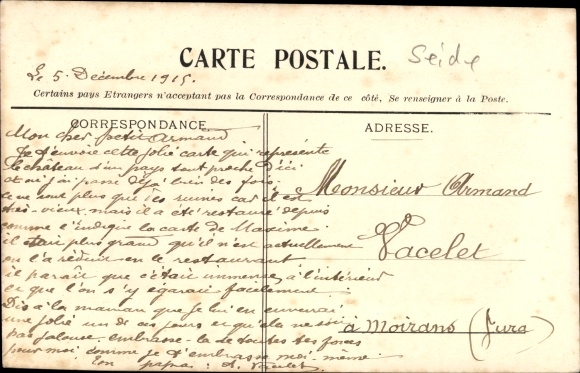 Seide
CARTE POSTALE.
Le 5. Décembre 1915.
Certains pays Etrangers n'acceptant pas la Correspondance de ce côté, Se renseigner à la Poste.
CORRESPONDANCE
ADRESSE.
Mon cher petit Armand
Je t'envoie cette jolie carte qui représente
le château d'un pays tout proche d'ici
et où j'ai passé déjà bien des fois.
Ce ne sont plus que des ruines car il est
très-vieux, mais il a été restauré depuis
comme l'indique la carte de Maxime
il était plus grand qu'il n'est actuellement
on l'a réduit en le restaurant
il paraît que c'était immense à l'intérieur
et que l'on s'y égarait facilement.
Dis à la maman que je lui en enverrai
une jolie un de ces jours et qu'elle ne soit
pas jalouse. embrasse-la de toutes tes forces
pour moi, comme je t'embrasse moi-même.
Ton papa: A. Vacelet
Monsieur Armand
Vacelet
à Moirans (Jura)